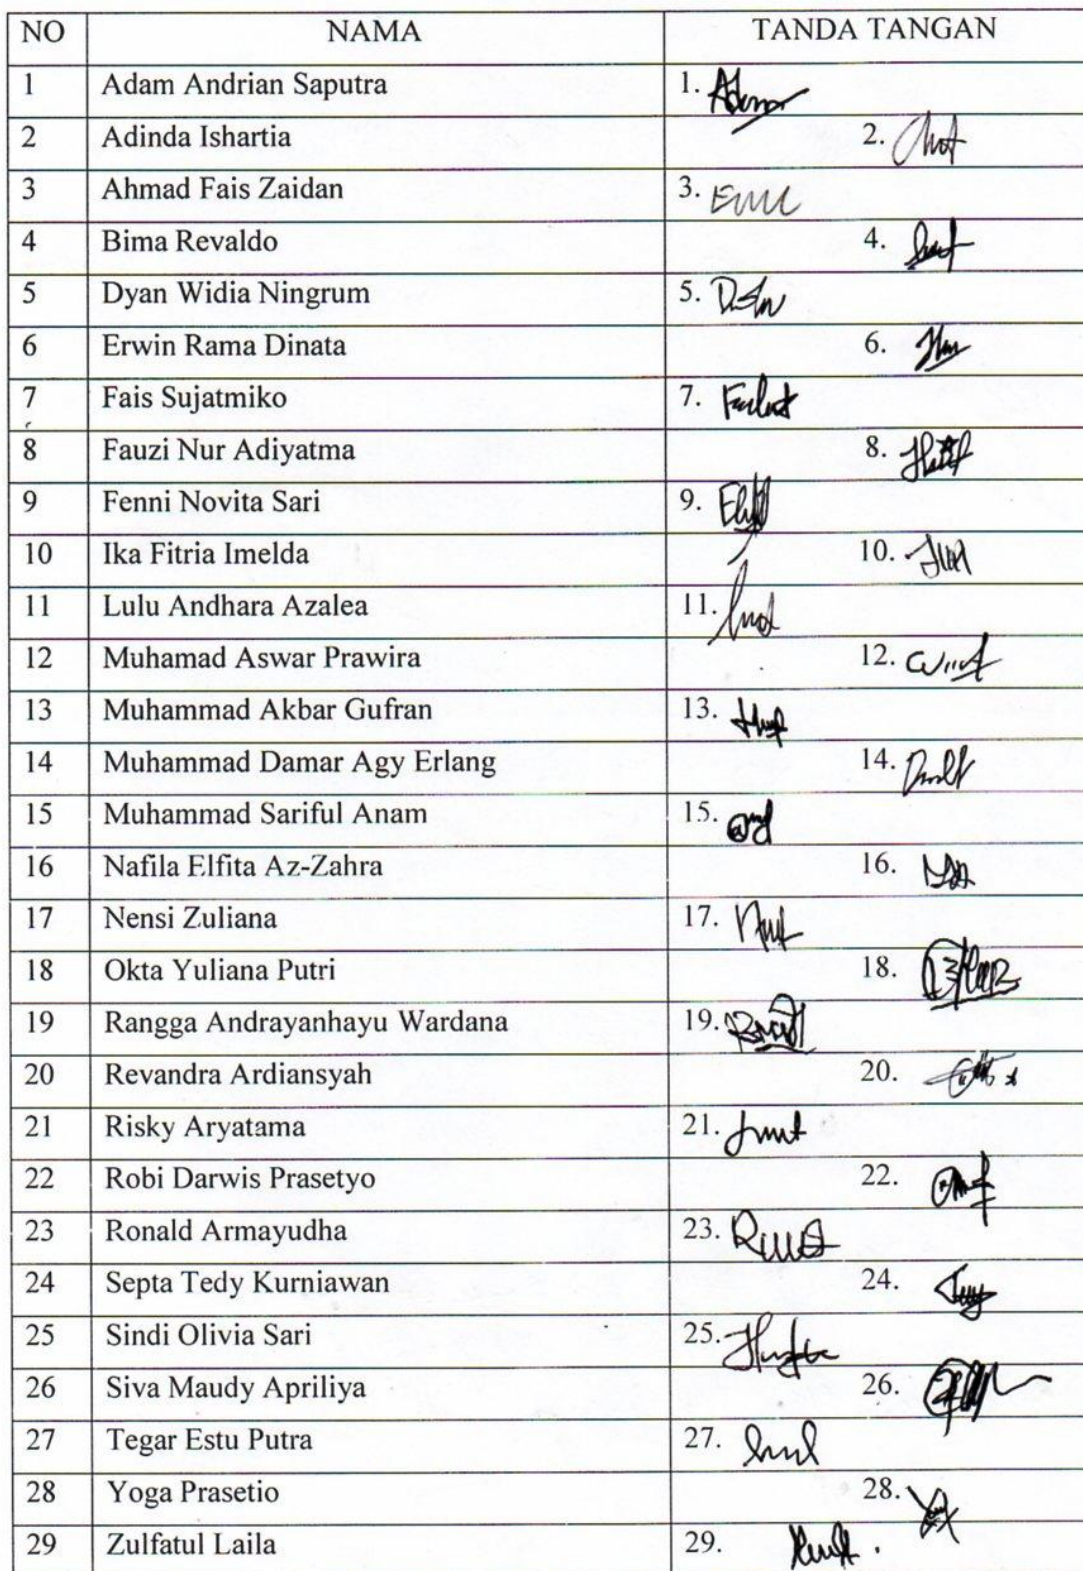 NO NAMA TANDA TANGAN
1 Adam Andrian Saputra 1.
2 Adinda Ishartia 2.
3 Ahmad Fais Zaidan 3.
4 Bima Revaldo 4.
5 Dyan Widia Ningrum 5.
6 Erwin Rama Dinata 6.
7 Fais Sujatmiko 7.
8 Fauzi Nur Adiyatma 8.
9 Fenni Novita Sari 9.
10 Ika Fitria Imelda 10.
11 Lulu Andhara Azalea 11.
12 Muhamad Aswar Prawira 12.
13 Muhammad Akbar Gufran 13.
14 Muhammad Damar Agy Erlang 14.
15 Muhammad Sariful Anam 15.
16 Nafila Elfita Az-Zahra 16.
17 Nensi Zuliana 17.
18 Okta Yuliana Putri 18.
19 Rangga Andrayanhayu Wardana 19.
20 Revandra Ardiansyah 20.
21 Risky Aryatama 21.
22 Robi Darwis Prasetyo 22.
23 Ronald Armayudha 23.
24 Septa Tedy Kurniawan 24.
25 Sindi Olivia Sari 25.
26 Siva Maudy Apriliya 26.
27 Tegar Estu Putra 27.
28 Yoga Prasetio 28.
29 Zulfatul Laila 29.